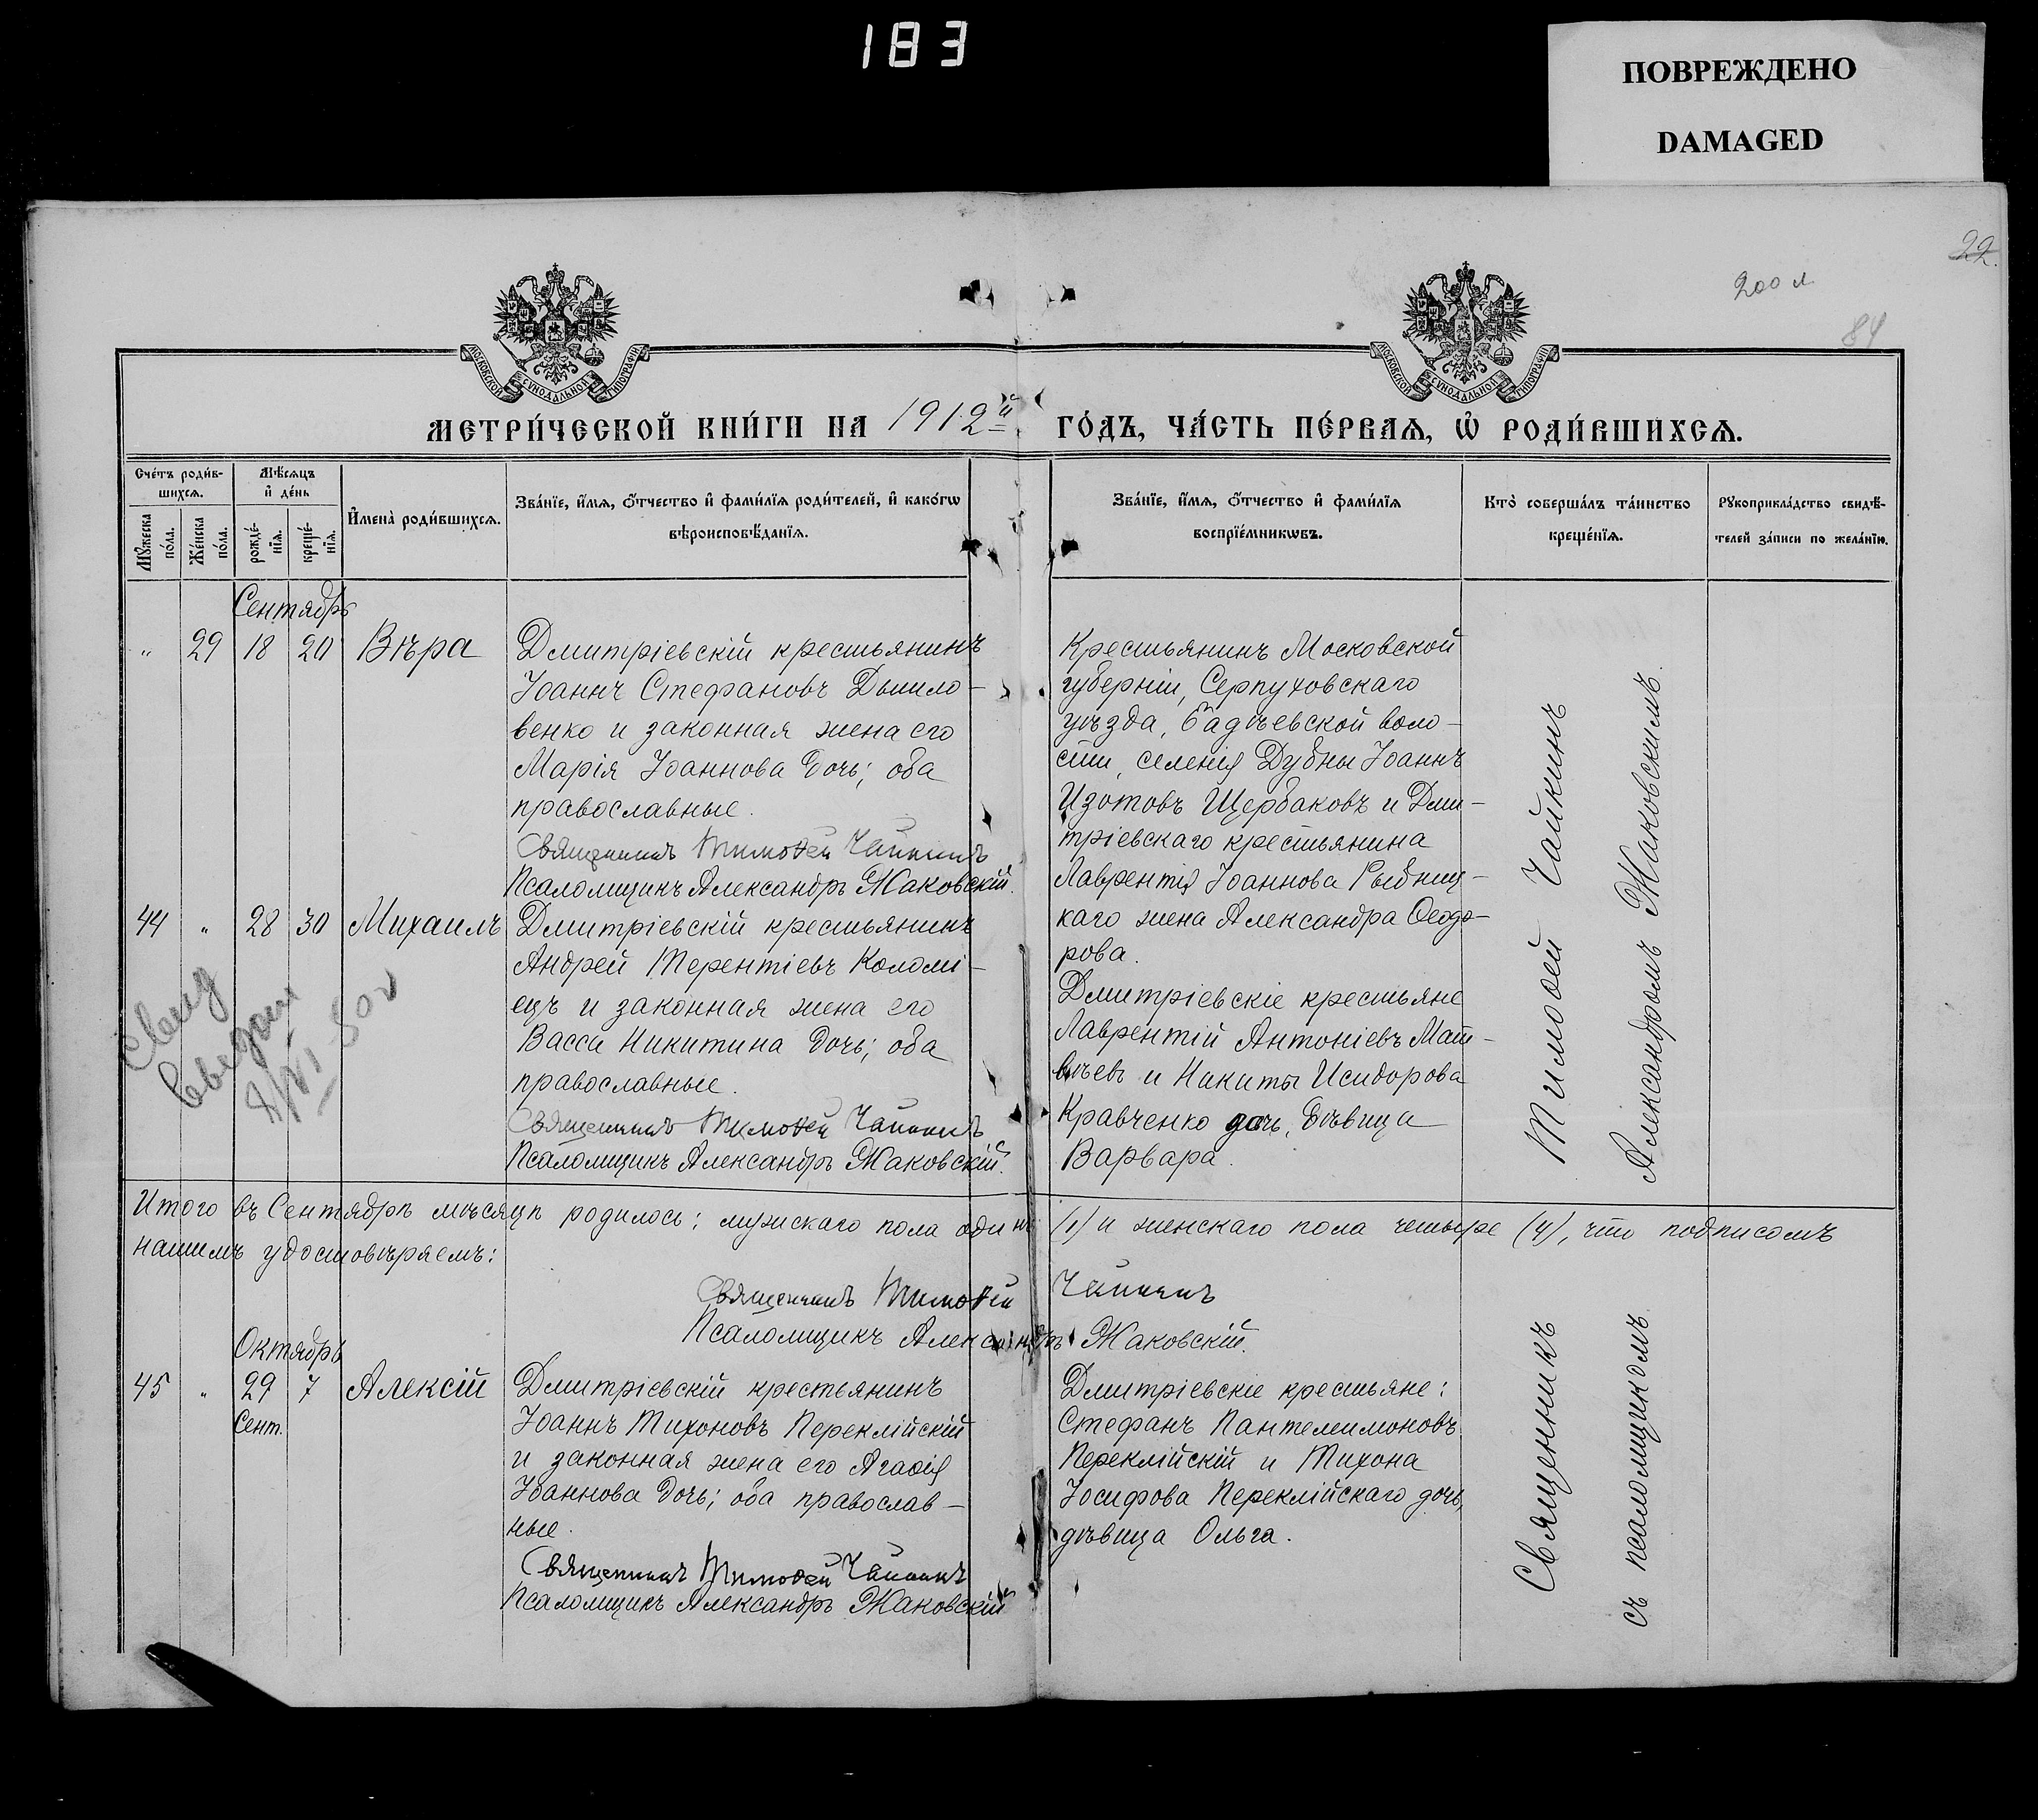 183
ПОВРЕЖДЕНО
DAMAGED
22.
200 л
84
МОСКОВСКОЙ СѴНОДАЛЬНОЙ ТИПОГРАФІИ
МОСКОВСКОЙ СѴНОДАЛЬНОЙ ТИПОГРАФІИ
МЕТРИ́ЧЕСКОЙ КНИ́ГИ НА 1912й ГО́ДЪ, ЧА́СТЬ ПЕ́РВАѦ, Ѡ҆ РОДИ́ВШИХСѦ.
Счéтъ роди́в-
шихсѧ.
Мѣ́сѧцъ
и҆ дéнь
Мꙋ́жеска
по́ла.
Жéнска
по́ла.
рождé-
нїѧ.
крещé-
нїѧ.
И҆мена̀ роди́вшихсѧ.
Зва́нїе, и҆́мѧ, ѻ҆́тчество и҆ фами́лїѧ роди́телей, и҆ како́гѡ
вѣроисповѣ́данїѧ.
Зва́нїе, и҆́мѧ, ѻ҆́тчество и҆ фами́лїѧ
воспрїéмникѡвъ.
Кто̀ соверша́лъ та́инство
крещéнїѧ.
Рꙋкоприкла́дство свидѣ́-
телей за́писи по жела́нїю.
Сентябрь
" 29 18 20 Вѣра
Дмитріевскій крестьянинъ
Іоаннъ Стефановъ Дыило-
венко и законная жена его
Марія Іоаннова дочь; оба
православные.
Священникъ Тимоѳей Чайкинъ
Псаломщикъ Александръ Жаковскій.
Крестьянинъ Московской
губерніи, Серпуховскаго
уѣзда, Бадѣевской воло-
сти, селенія Дубны Іоаннъ
Изотовъ Щербаковъ и Дми-
тріевскаго крестьянина
Лаврентія Іоаннова Рыбниц-
каго жена Александра Ѳеодо-
рова.
44 " 28 30 Михаилъ
Дмитріевскій крестьянинъ
Андрей Терентіевъ Коломі-
ецъ и законная жена его
Васса Никитина дочь; оба
православные.
Священникъ Тимоѳей Чайкинъ
Псаломщикъ Александръ Жаковскій.
Дмитріевскіе крестьяне
Лаврентій Антоніевъ Мат-
вѣевъ и Никиты Исидорова
Кравченко дочь, дѣвица
Варвара.
Итого въ Сентябрѣ мѣсяцѣ родилось: мужскаго пола одинъ (1) и женскаго пола четыре (4), что подписомъ
нашимъ удостовѣряемъ:
Священникъ Тимоѳей Чайкинъ
Псаломщикъ Александръ Жаковскій.
Октябрь
45 " 29 7 Алексій
Сент.
Дмитріевскій крестьянинъ
Іоаннъ Тихоновъ Переклійскій
и законная жена его Агаѳія
Іоаннова дочь; оба православ-
ные.
Священникъ Тимоѳей Чайкинъ
Псаломщикъ Александръ Жаковскій
Дмитріевскіе крестьяне:
Стефанъ Пантелеимоновъ
Переклійскій и Тихона
Іосифова Переклійскаго дочь,
дѣвица Ольга.
Священникъ Тимоѳей Чайкинъ
съ псаломщикомъ Александромъ Жаковскимъ.